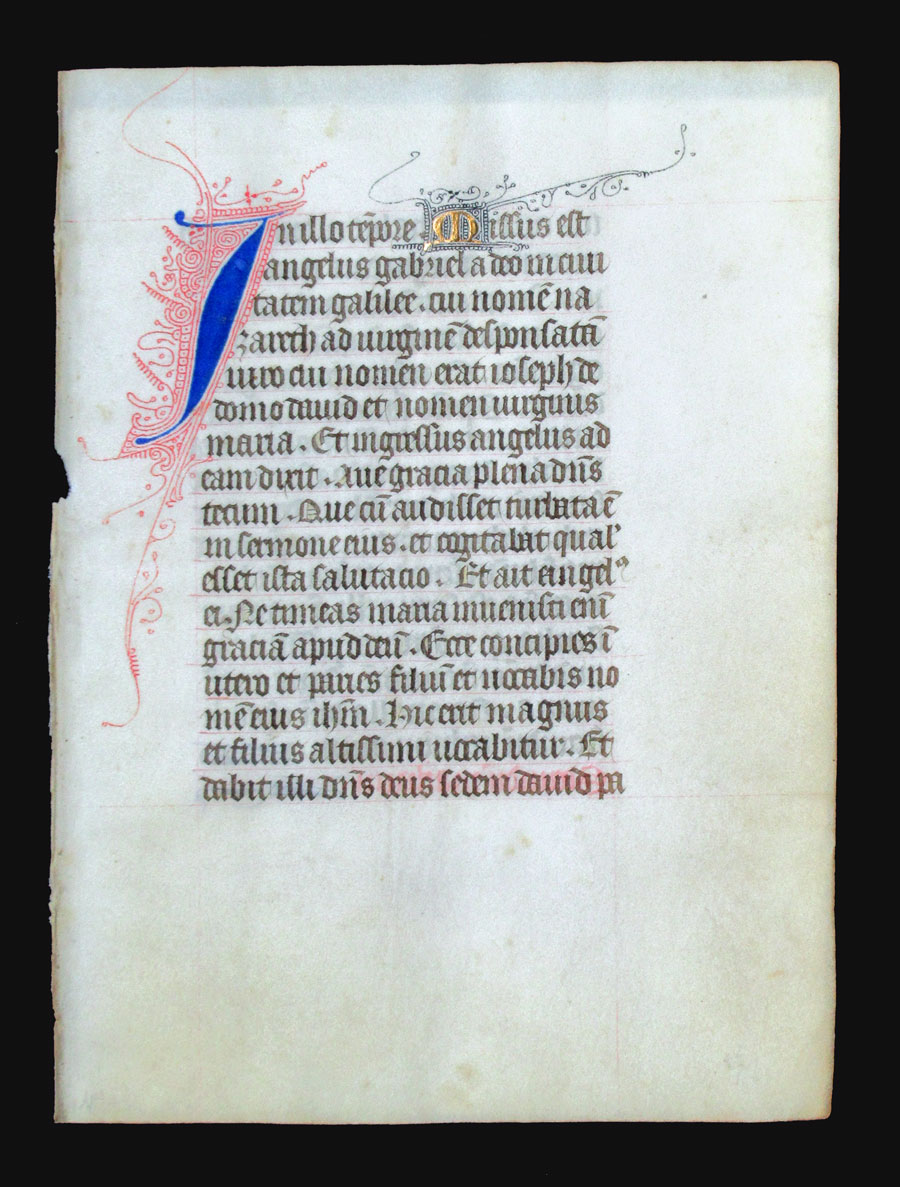 In illo tēpore Missus est
angelus gabriel a deo in ciui
tatem galilee . cui nomē na
zareth ad uirginē desponsatā
uiro cui nomen erat ioseph de
domo dauid et nomen uirginis
maria . Et ingressus angelus ad
eam dixit . Aue gracia plena dn̄s
tecum . Que cū audisset turbata ē
in sermone eius . et cogitabat qual'
esset ista salutacio . Et ait
ei . Ne timeas maria inuenisti eni̅
graciā apud deū . Ecce concipies ī
utero et paries filiū et uocabis no
mē eius ihm̄ . Hic erit magnus
et filius altissimi uocabitur . Et
dabit illi dn̄s deus sedem dauid pa